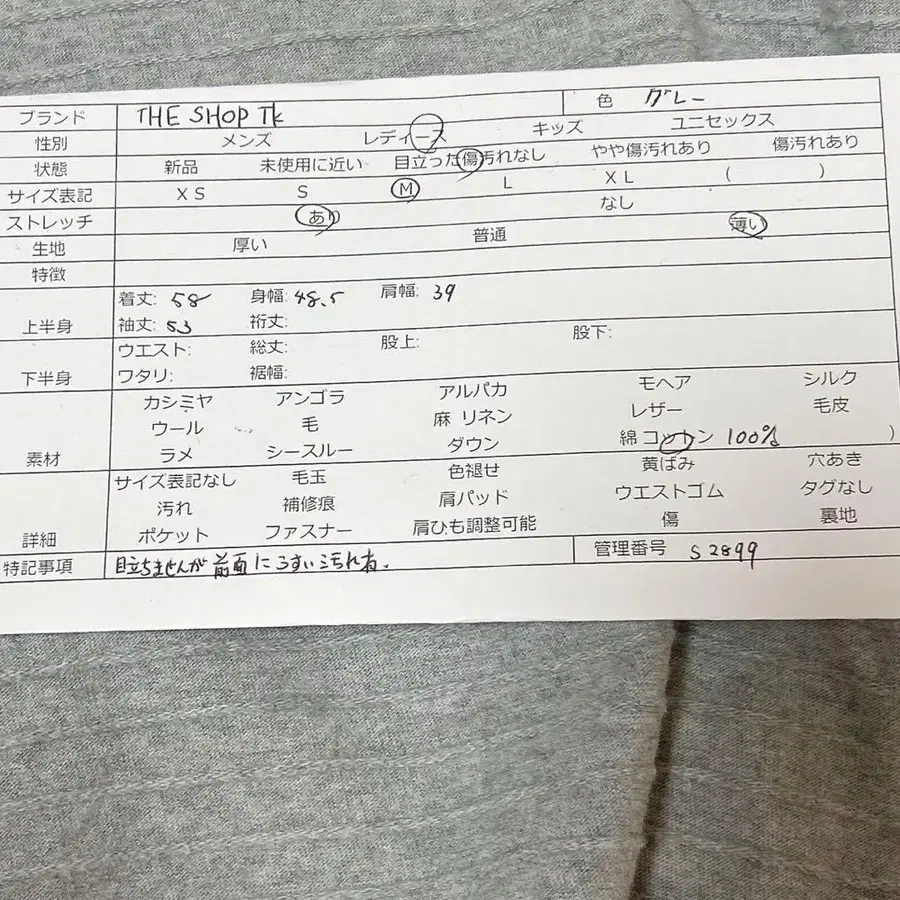 ブランド THE SHOP TK 色 グレー
性別 メンズ レディース キッズ ユニセックス
状態 新品 未使用に近い 目立った傷汚れなし やや傷汚れあり 傷汚れあり
サイズ表記 XS S M L XL ( )
ストレッチ あり なし
生地 厚い 普通 薄い
特徴
上半身 着丈: 58 身幅: 48.5 肩幅: 39
袖丈: 53 裄丈:
下半身 ウエスト: 総丈: 股上: 股下:
ワタリ: 裾幅:
素材 カシミヤ アンゴラ アルパカ モヘア シルク
ウール 毛 麻 リネン レザー 毛皮
ラメ シースルー ダウン 綿 コットン 100% )
詳細 サイズ表記なし 毛玉 色褪せ 黄ばみ 穴あき
汚れ 補修痕 肩パッド ウエストゴム タグなし
ポケット ファスナー 肩ひも調整可能 傷 裏地
特記事項 目立ちませんが前面にうすい汚れ有. 管理番号 S2899